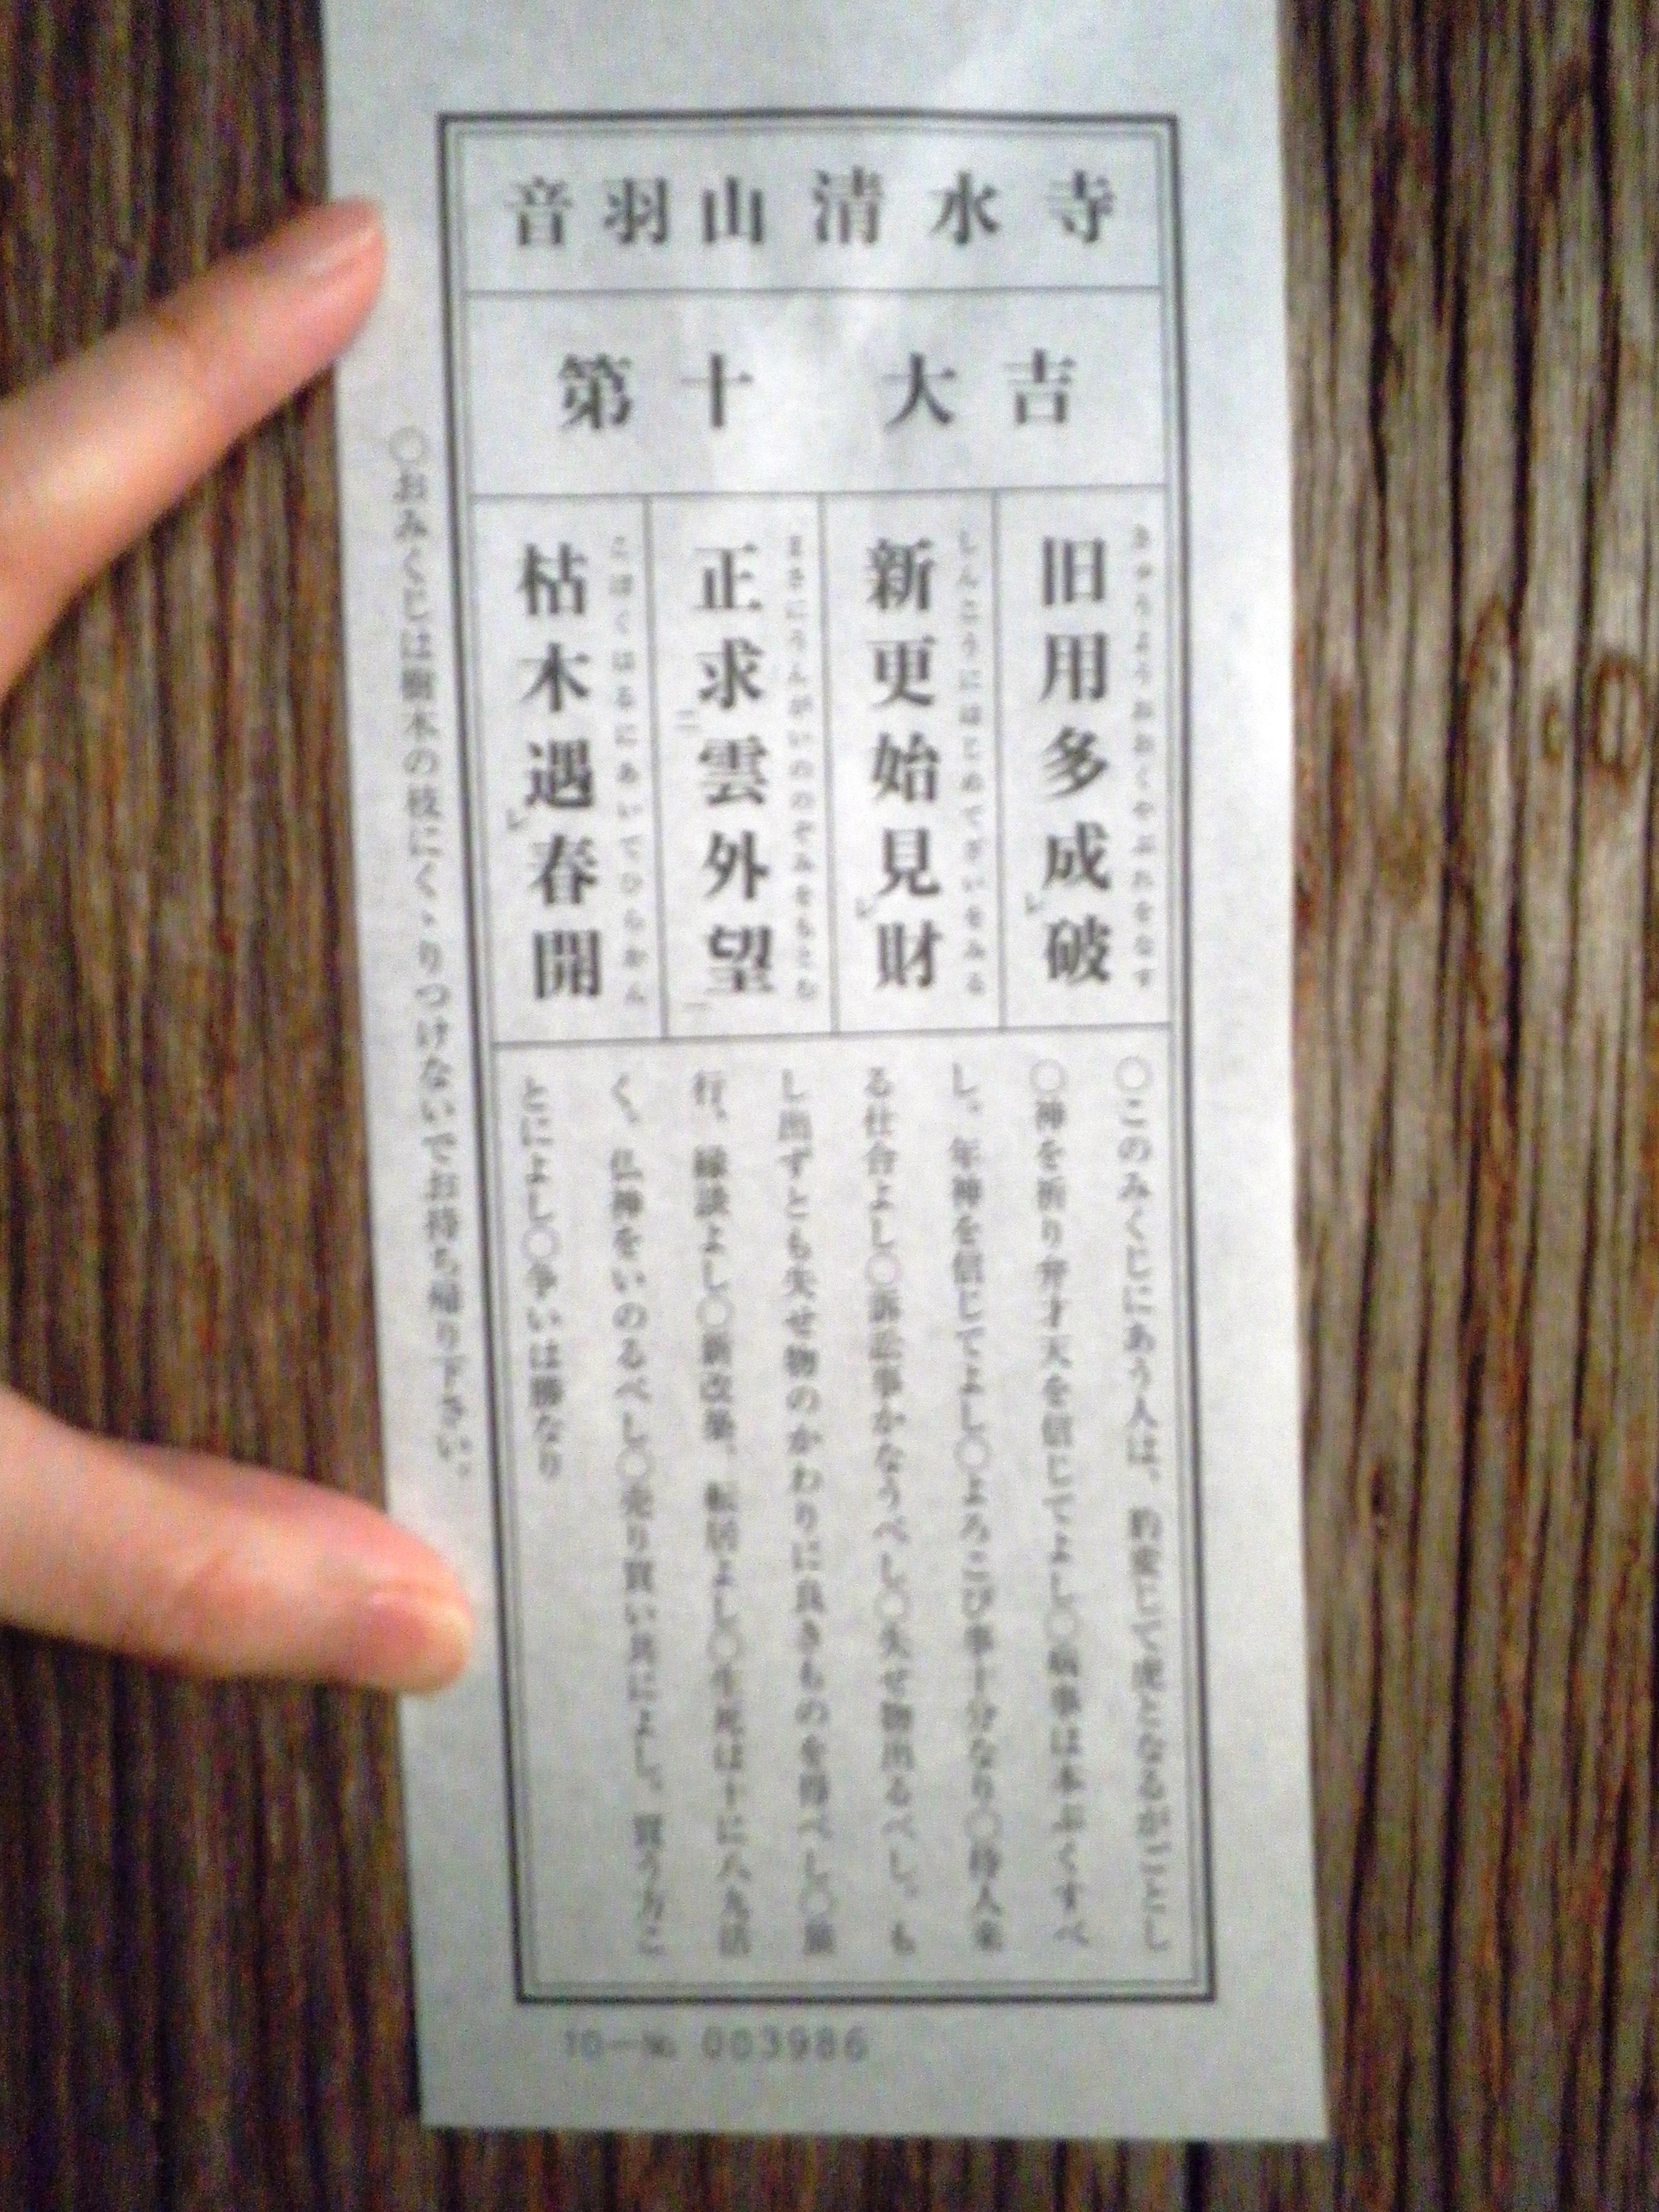 音羽山清水寺
第十 大吉
旧用多成破
きゅうようおおくやぶれをなす
新更始見財
しんこうにはじめてざいをみる
正求雲外望
まさにうんがいののぞみをもとむ
枯木遇春開
こぼくはるにあいてひらかん
〇このみくじにあう人は、豹変じて虎となるがごとし
〇神を祈り弁才天を信じてよし〇病事は本ぷくすべ
し。年神を信じてよし〇よろこび事十分なり〇待人来
る仕合よし〇訴訟事かなうべし〇失せ物出るべし。も
し出ずとも失せ物のかわりに良きものを得べし〇旅
行、縁談よし〇新改築、転居よし〇生死は十に八九活
く、仏神をいのるべし〇売り買い共によし。買う方こ
とによし〇争いは勝なり
〇おみくじは樹木の枝にくゝりつけないでお持ち帰り下さい。
10-№ 003986